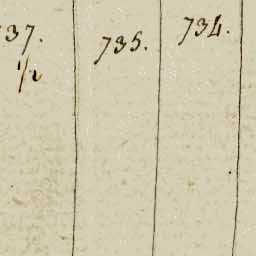 737. 735. 734.
1/2